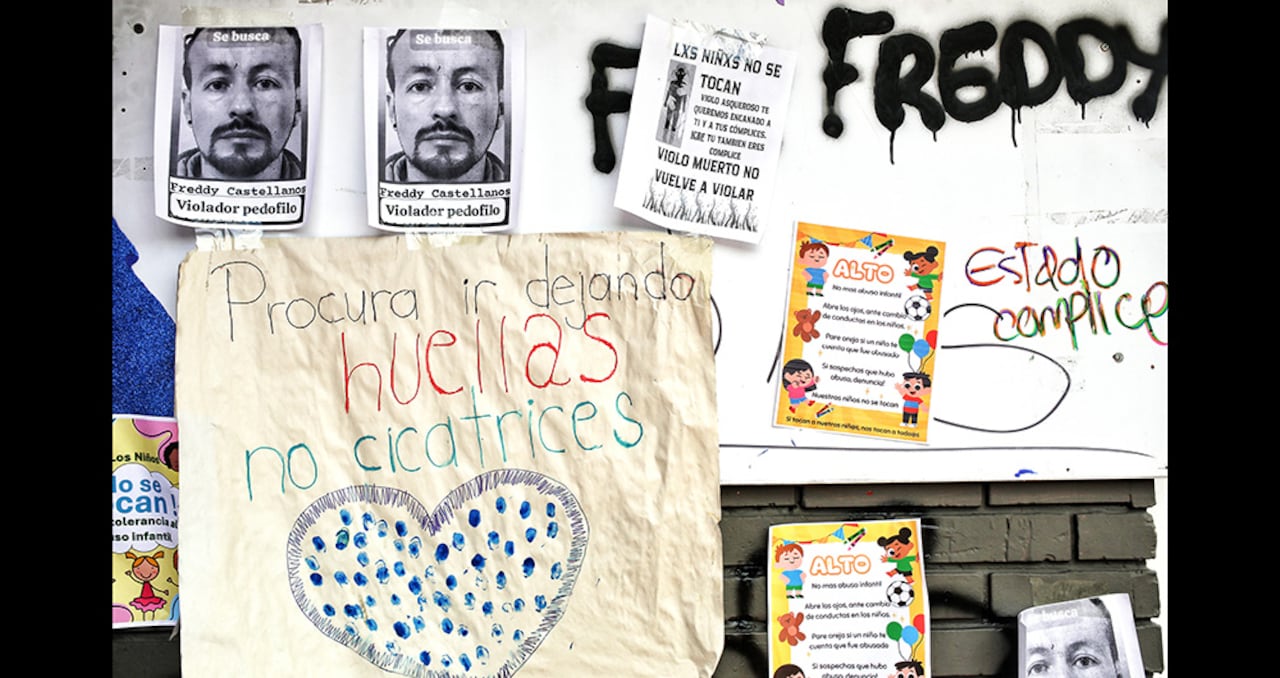 Se busca
Freddy Castellanos
Violador pedofilo
Se busca
Freddy Castellanos
Violador pedofilo
F
LXS NIÑXS NO SE
TOCAN
VIOLO ASQUEROSO TE
QUEREMOS ENCANADO A
TI Y A TUS CÓMPLICES.
TU TAMBIEN ERES
COMPLICE
VIOLO MUERTO NO
VUELVE A VIOLAR
FREDDY
Procura ir dejando
huellas
no cicatrices
ALTO
No mas abuso infantil
Abre los ojos, ante cambio
de conductas en los niños.
Pare oreja si un niño te
cuenta que fue abusado
Si sospechas que hubo
abuso, denuncia!
Nuestros niños no se tocan
Si tocan a nuetros niñ@s, nos tocan a tod@s
Estado
complice
Los Niños
No se
tocan!
tolerancia al
uso infantil
ALTO
No mas abuso infantil
Abre los ojos, ante cambio
de conductas en los niños.
Pare oreja si un niño te
cuenta que fue abusado
Si sospechas que hubo
abuso, denuncia!
Se busca